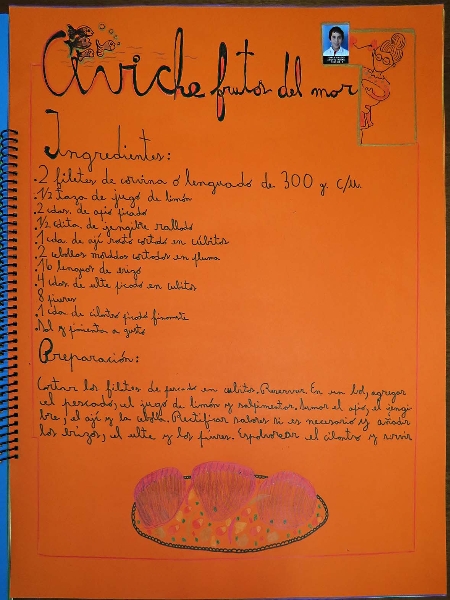 Ceviche frutos del mar
Ingredientes:
. 2 filetes de corvina o lenguado de 300 g. c/u.
. 1/2 taza de jugo de limón
. 2 cdas. de apio picado
. 1/2 cdita. de jengibre rallado
. 1 cda de ají rojo cortado en cubitos
. 2 cebollas moradas cortadas en pluma
. 16 lenguas de erizo
. 4 cdas de ulte picado en cubitos
. 8 piures
. 1 cda de cilantro picado finamente
. Sal y pimienta a gusto
Preparación:
Cortar los filetes de pescado en cubitos. Reservar. En un bol, agregar
el pescado, el jugo de limón y salpimentar. Sumar el apio, el jengi
bre, el ají y la cebolla. Rectificar sabores si es necesario y añadir
los erizos, el ulte y los piures. Espolvorear el cilantro y servir